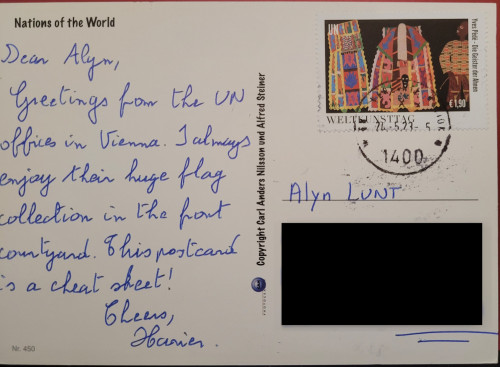 Nations of the World
Dear Alyn,
Greetings from the UN
offices in Vienna. I always
enjoy their huge flag
collection in the front
courtyard. This postcard
is a cheat sheet!
Cheers,
Nr. 450
Copyright Carl Anders Nilsson und Alfred Steiner
UN
Yves Pède - Die Geister der Ahnen
€1,90
WELTKUNSTTAG
24.5.23- 5
1400
Alyn LUNT